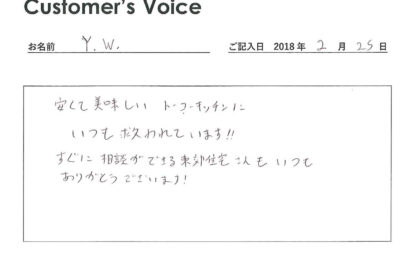 Customer's Voice
お名前 Y.W. ご記入日 2018年 2月 25日
安くて美味しい トーコーキッチンに
いつも 救われています!!
すぐに 相談ができる東郊住宅さんも いつも
ありがとうございます!